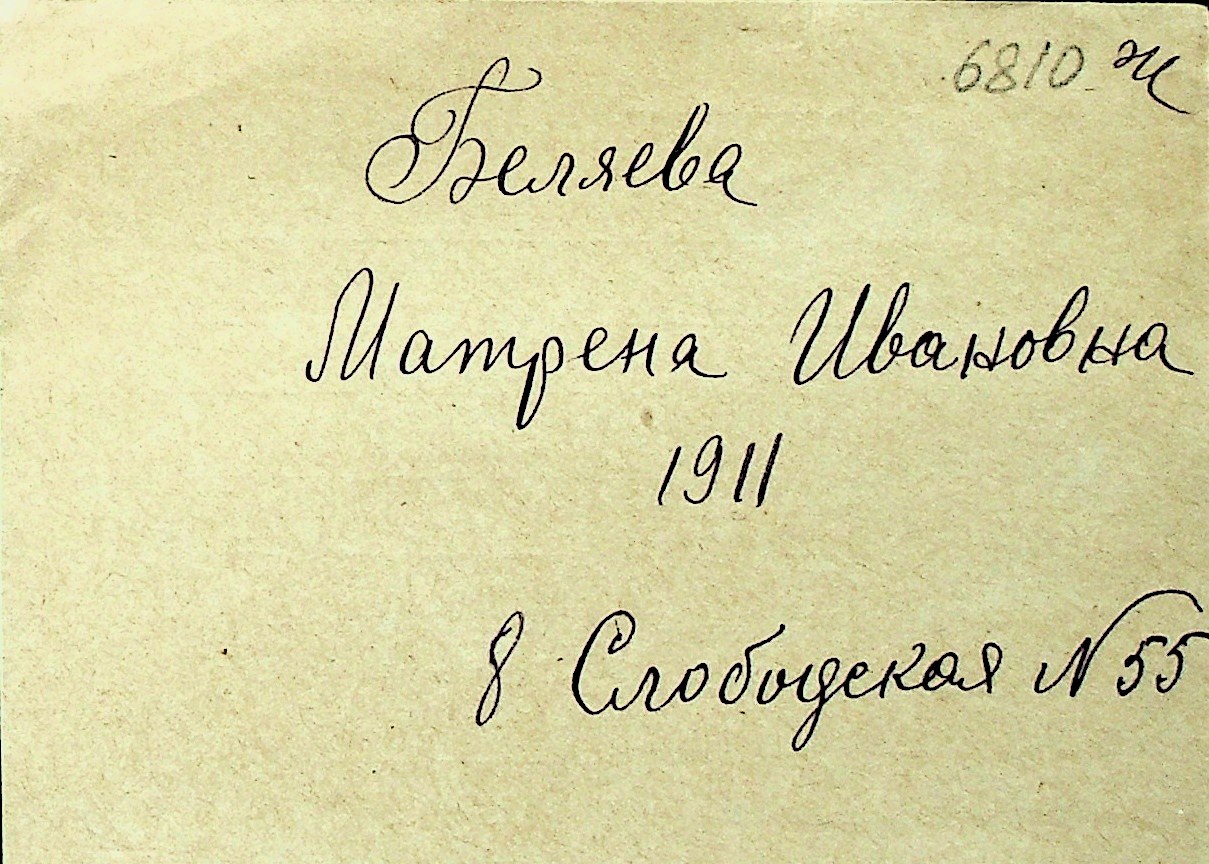 6810 ж
Беляева
Матрена Ивановна
1911
8 Слободская N 55